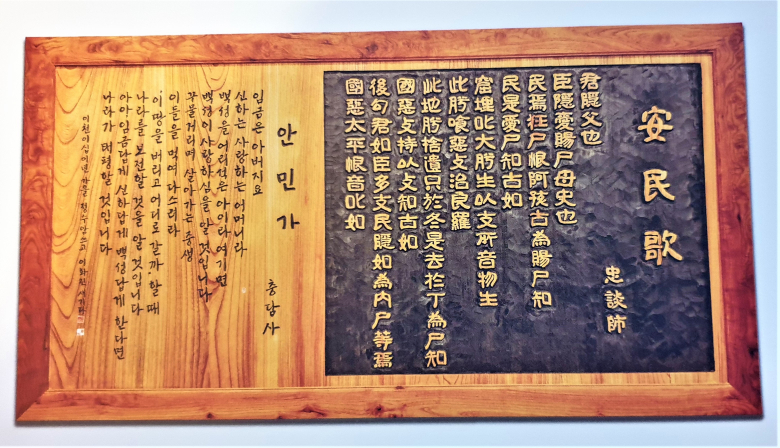 安民歌
忠談師
君隠父也
臣隠愛賜尸母史也
民焉狂尸恨阿孩古為賜尸知
民是愛尸知古如
窟理叱大肹生以支所音物生
此肹喰惡支治良羅
此地肹捨遣只於冬是去於丁為尸知
國惡支持以支知古如
後句君如臣多支民隠如為內尸等焉
國惡太平恨音叱如
안민가
충담사
임금은 아버지요
신하는 사랑하는 어머니라
백성을 어리석은 아이라 여기면
백성이 사랑하심을 알 것입니다
꾸물거리며 살아가는 중생
이들을 먹여 다스리라
이 땅을 버리고 어디로 갈까 할 때
나라를 보전할 것을 알 것입니다
아아 임금답게 신하답게 백성답게 한다면
나라가 태평할 것입니다
이천이십이년